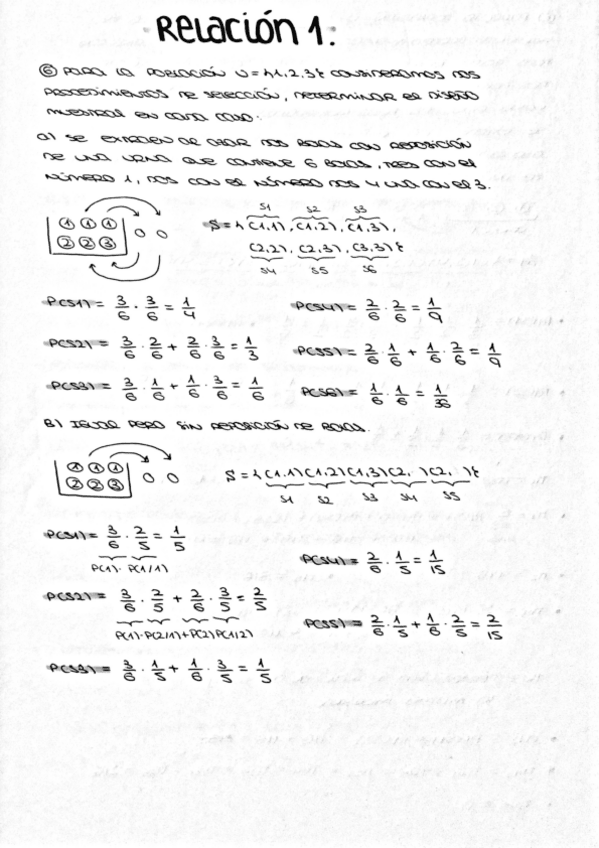 Relación 1.
⑥ PARA LA POBLACIÓN U = {1,2,3} CONSIDERAMOS DOS
PROCEDIMIENTOS DE SELECCIÓN, DETERMINAR EL DISEÑO
MUESTRAL EN CADA CASO:
A) SE EXTRAEN AL AZAR DOS BOLAS CON REPOSICIÓN
DE UNA URNA QUE CONTIENE 6 BOLAS, TRES CON EL
NÚMERO 1, DOS CON EL NÚMERO DOS Y UNA CON EL 3.
S1 S2 S3
① ① ① S = { (1,1), (1,2), (1,3),
② ② ③ (2,2), (2,3), (3,3) }
S4 S5 S6
P(S1) = 3/6 · 3/6 = 1/4 P(S4) = 2/6 · 2/6 = 1/9
P(S2) = 3/6 · 2/6 + 2/6 · 3/6 = 1/3 P(S5) = 2/6 · 1/6 + 1/6 · 2/6 = 1/9
P(S3) = 3/6 · 1/6 + 1/6 · 3/6 = 1/6 P(S6) = 1/6 · 1/6 = 1/36
B) IGUAL PERO SIN REPOSICIÓN DE BOLAS.
① ① ① S = { (1,1) (1,2) (1,3) (2, ) (2, ) }
② ② ③ S1 S2 S3 S4 S5
P(S1) = 3/6 · 2/5 = 1/5 P(S4) = 2/6 · 1/5 = 1/15
P(1) · P(1/1)
P(S2) = 3/6 · 2/5 + 2/6 · 3/5 = 2/5 P(S5) = 2/6 · 1/5 + 1/6 · 2/5 = 2/15
P(1)·P(2/1)+P(2)P(1/2)
P(S3) = 3/6 · 1/5 + 1/6 · 3/5 = 1/5